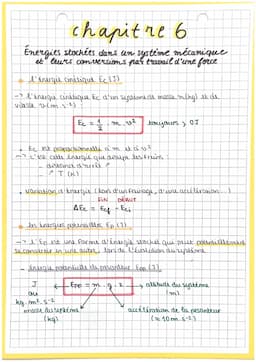 chapitre 6
Énergies stockées dans un système mécanique
et leurs conversions par travail d'une force
l'énergie cinétique Ec (J)
-> l'énergie cinétique Ec d'un système de masse m (kg) et de
vitesse v (m.s⁻¹) :
Ec = 1/2 . m . v² toujours > 0 J
Ec est proportionnelle à m et à v²
-> c'est cette énergie qui
distance d'arrêt
T (K)
variation d'énergie (lors d'un freinage, d'une accélération...)
FIN DÉBUT
ΔEc = Ecf - Eci
les énergies potentielles Ep (J)
-> l'Ep est une forme d'énergie stockée qui peut potentiellement
se convertir en une autre, lors de l'évolution du système.
- énergie potentielle de pesanteur Epp (J)
J
ou
kg.m².s⁻²
Epp = m . g . z
altitude du système
(m)
masse du système
(kg)
accélération de la pesanteur
(≈ 10 m.s⁻²)